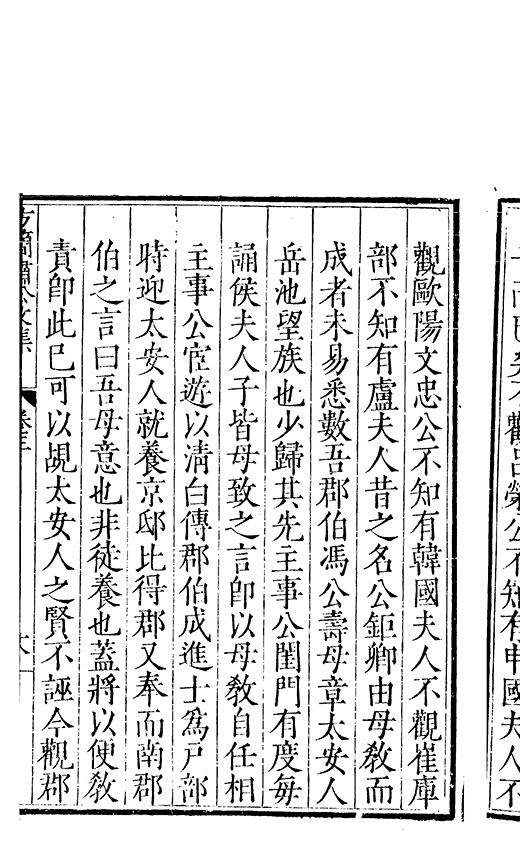 不觀呂榮公不知有申國夫人不
觀歐陽文忠公不知有韓國夫人不觀崔庫
部不知有盧夫人昔之名公鉅卿由母敎而
成者未易悉數吾郡伯馮公壽母章太安人
岳池望族也少歸其先主事公閨門有度每
誦侯夫人子皆母致之言卽以母敎自任相
主事公宦遊以清白傳郡伯成進士爲戸部
時迎太安人就養京邸比得郡又奉而南郡
伯之言曰吾母意也非徒養也蓋將以便敎
責卽此已可以覘太安人之賢不誣今觀郡